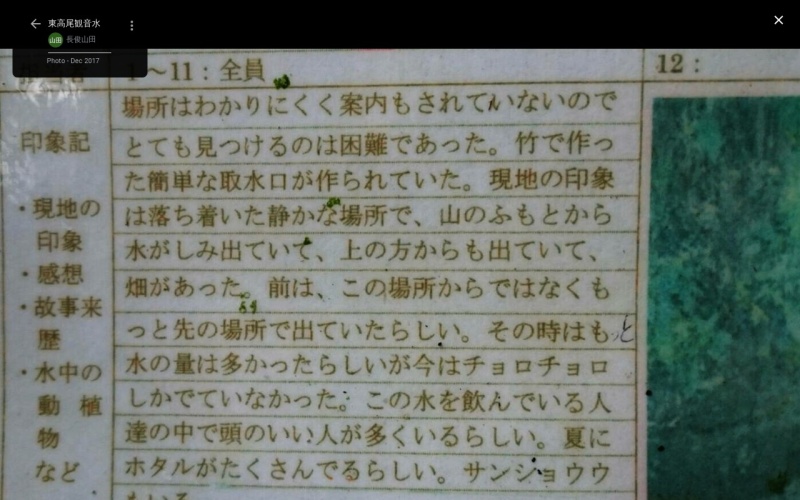 東高尾観音水
山田 長俊山田
Photo - Dec 2017
1～11：全員
12：
場所はわかりにくく案内もされていないので
とても見つけるのは困難であった。竹で作っ
た簡単な取水口が作られていた。現地の印象
は落ち着いた静かな場所で、山のふもとから
水がしみ出ていて、上の方からも出ていて、
畑があった。前は、この場所からではなくも
っと先の場所で出ていたらしい。その時はもっと
水の量は多かったらしいが今はチョロチョロ
しかでていなかった。この水を飲んでいる人
達の中で頭のいい人が多くいるらしい。夏に
ホタルがたくさんでるらしい。サンショウウ
印象記
・現地の
印象
・感想
・故事来
歴
・水中の
動 植
物
など